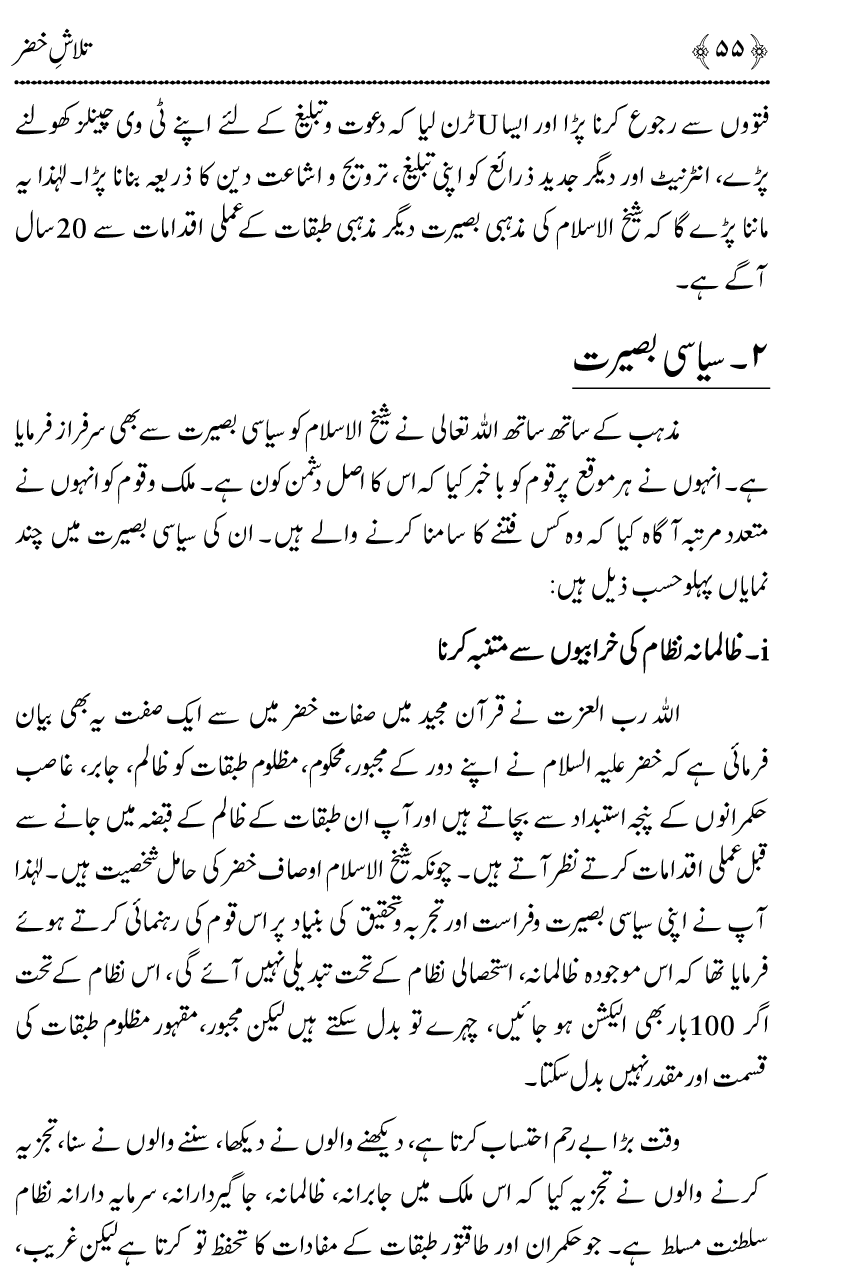 ﴿۵۵﴾ تلاشِ خضر
فتووں سے رجوع کرنا پڑا اور ایسا U ٹرن لیا کہ دعوت و تبلیغ کے لئے اپنے ٹی وی چینلز کھولنے
پڑے، انٹرنیٹ اور دیگر جدید ذرائع کو اپنی تبلیغ، ترویج و اشاعت دین کا ذریعہ بنانا پڑا۔ لہٰذا یہ
ماننا پڑے گا کہ شیخ الاسلام کی مذہبی بصیرت دیگر مذہبی طبقات کے عملی اقدامات سے 20 سال
آگے ہے۔
۲۔ سیاسی بصیرت
مذہب کے ساتھ ساتھ اللہ تعالی نے شیخ الاسلام کو سیاسی بصیرت سے بھی سرفراز فرمایا
ہے۔ انہوں نے ہر موقع پر قوم کو باخبر کیا کہ اس کا اصل دشمن کون ہے۔ ملک و قوم کو انہوں نے
متعدد مرتبہ آگاہ کیا کہ وہ کس فتنے کا سامنا کرنے والے ہیں۔ ان کی سیاسی بصیرت میں چند
نمایاں پہلو حسب ذیل ہیں:
i۔ ظالمانہ نظام کی خرابیوں سے متنبہ کرنا
اللہ رب العزت نے قرآن مجید میں صفات خضر میں سے ایک صفت یہ بھی بیان
فرمائی ہے کہ خضر علیہ السلام نے اپنے دور کے مجبور، محکوم، مظلوم طبقات کو ظالم، جابر، غاصب
حکمرانوں کے پنجہ استبداد سے بچاتے ہیں اور آپ ان طبقات کے ظالم کے قبضہ میں جانے سے
قبل عملی اقدامات کرتے نظر آتے ہیں۔ چونکہ شیخ الاسلام اوصاف خضر کی حامل شخصیت ہیں۔ لہٰذا
آپ نے اپنی سیاسی بصیرت و فراست اور تجربہ و تحقیق کی بنیاد پر اس قوم کی رہنمائی کرتے ہوئے
فرمایا تھا کہ اس موجودہ ظالمانہ، استحصالی نظام کے تحت تبدیلی نہیں آئے گی، اس نظام کے تحت
اگر 100 بار بھی الیکشن ہو جائیں، چہرے تو بدل سکتے ہیں لیکن مجبور، مقہور مظلوم طبقات کی
قسمت اور مقدر نہیں بدل سکتا۔
وقت بڑا بے رحم احتساب کرتا ہے، دیکھنے والوں نے دیکھا، سننے والوں نے سنا، تجزیہ
کرنے والوں نے تجزیہ کیا کہ اس ملک میں جابرانہ، ظالمانہ، جاگیردارانہ، سرمایہ دارانہ نظام
سلطنت مسلط ہے۔ جو حکمران اور طاقتور طبقات کے مفادات کا تحفظ تو کرتا ہے لیکن غریب،